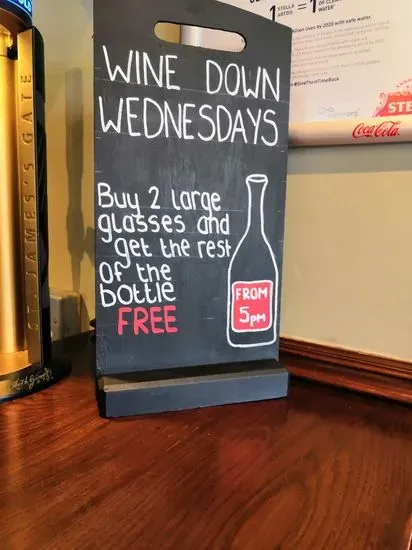 STELLA
ARTOIS
WATER
Million Lives by 2020 with safe water.
STE
Coca-Cola
ST. JAMES'S GATE
WINE DOWN
WEDNESDAYS
Buy 2 large
glasses and
get the rest
of the
bottle
FREE
FROM
5pm